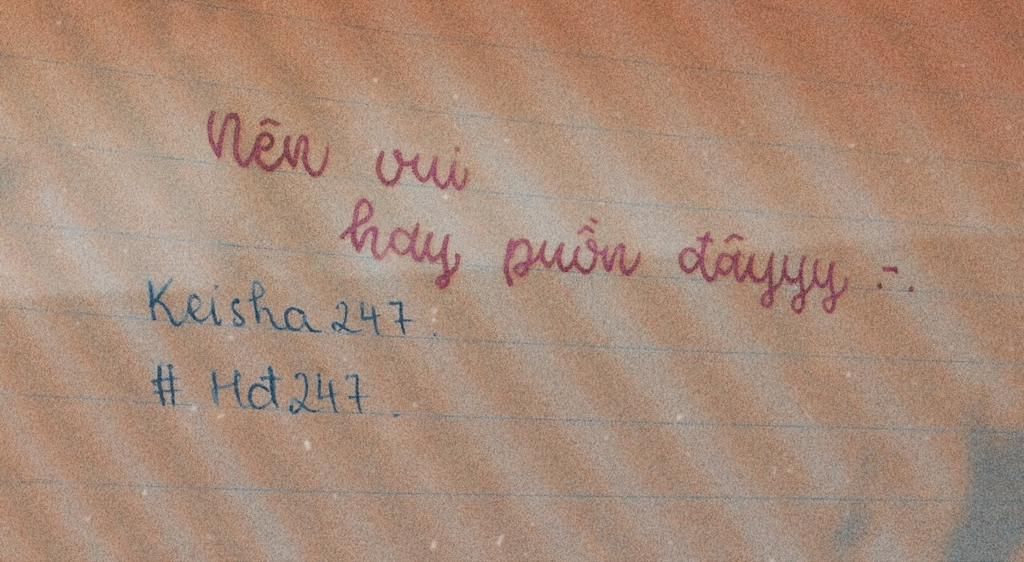 Nên vui
hay puồn đâyyy :.
Keisha 247.
# Hđ247.